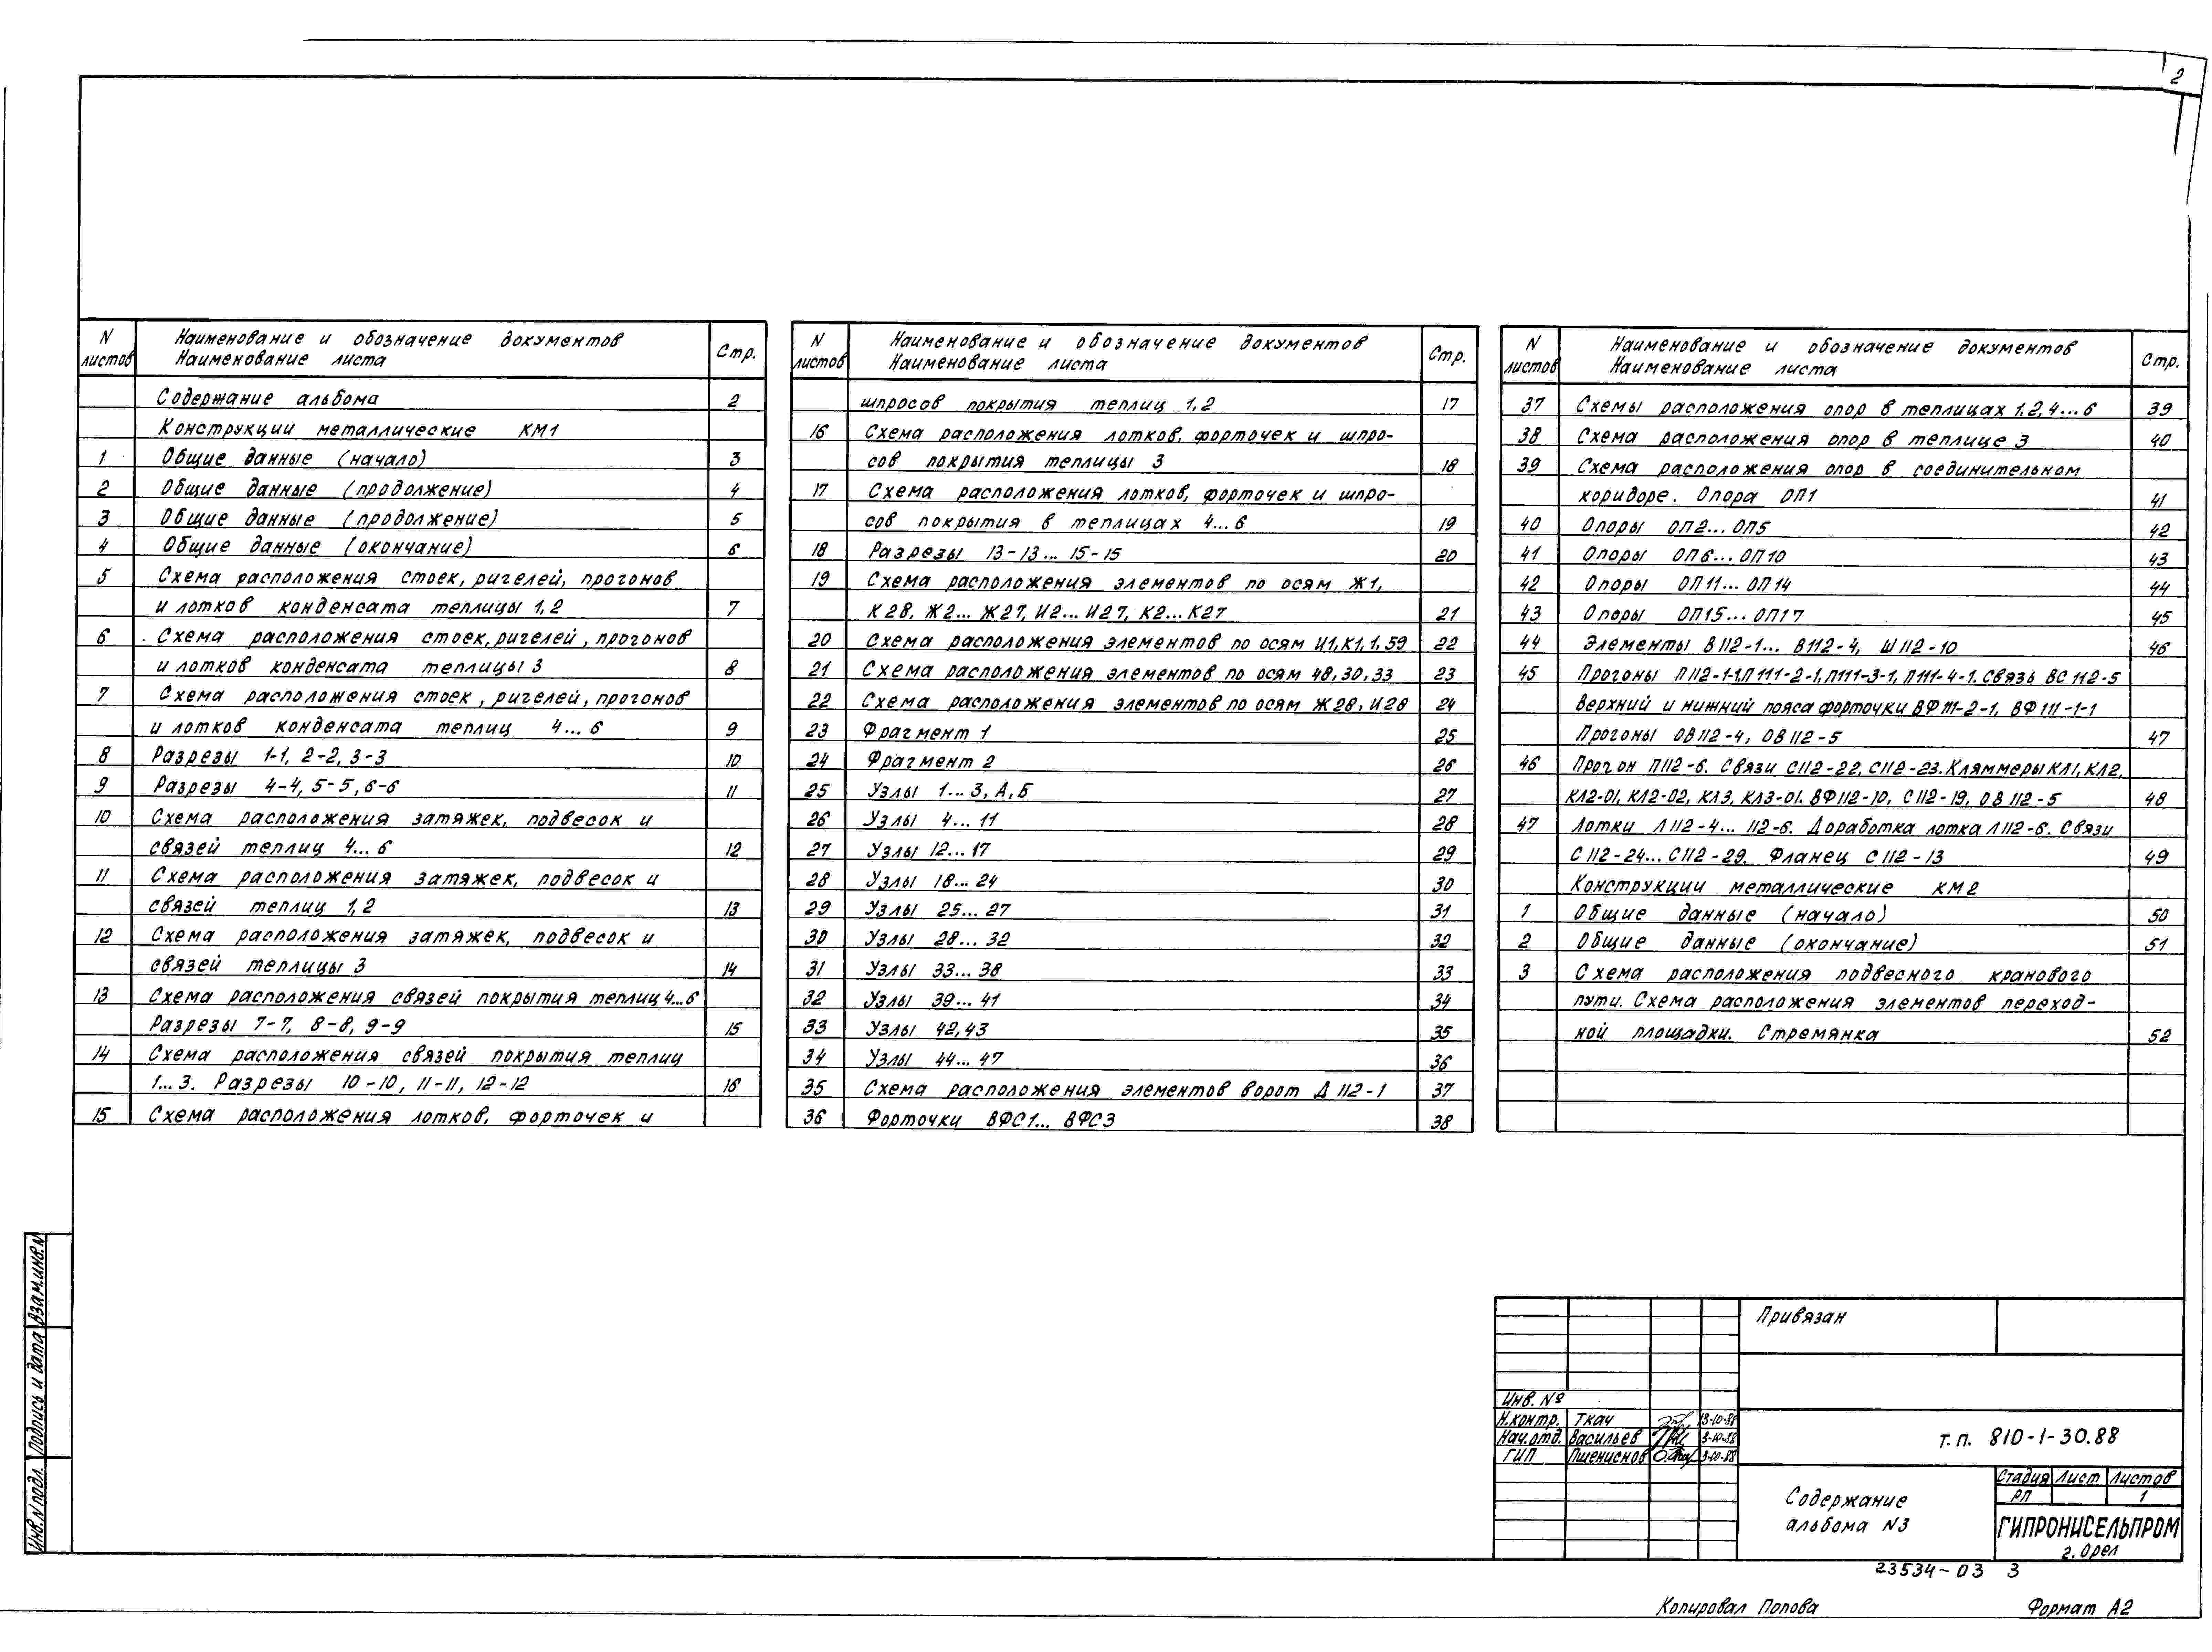 2
N листов Наименование и обозначение документов Наименование листа Стр.
Содержание альбома 2
Конструкции металлические КМ1
1 Общие данные (начало) 3
2 Общие данные (продолжение) 4
3 Общие данные (продолжение) 5
4 Общие данные (окончание) 6
5 Схема расположения стоек, ригелей, прогонов
и лотков конденсата теплицы 1,2 7
6 Схема расположения стоек, ригелей, прогонов
и лотков конденсата теплицы 3 8
7 Схема расположения стоек, ригелей, прогонов
и лотков конденсата теплиц 4...6 9
8 Разрезы 1-1, 2-2, 3-3 10
9 Разрезы 4-4, 5-5, 6-6 11
10 Схема расположения затяжек, подвесок и
связей теплиц 4...6 12
11 Схема расположения затяжек, подвесок и
связей теплиц 1,2 13
12 Схема расположения затяжек, подвесок и
связей теплицы 3 14
13 Схема расположения связей покрытия теплиц 4...6
Разрезы 7-7, 8-8, 9-9 15
14 Схема расположения связей покрытия теплиц
1...3. Разрезы 10-10, 11-11, 12-12 16
15 Схема расположения лотков, форточек и
N листов Наименование и обозначение документов Наименование листа Стр.
шпросов покрытия теплиц 1,2 17
16 Схема расположения лотков, форточек и шпро-
сов покрытия теплицы 3 18
17 Схема расположения лотков, форточек и шпро-
сов покрытия в теплицах 4...6 19
18 Разрезы 13-13... 15-15 20
19 Схема расположения элементов по осям Ж1,
К28, Ж2... Ж27, И2... И27, К2...К27 21
20 Схема расположения элементов по осям И1,К1,1,59 22
21 Схема расположения элементов по осям 48,30,33 23
22 Схема расположения элементов по осям Ж28, И28 24
23 Фрагмент 1 25
24 Фрагмент 2 26
25 Узлы 1...3, А, Б 27
26 Узлы 4...11 28
27 Узлы 12...17 29
28 Узлы 18...24 30
29 Узлы 25...27 31
30 Узлы 28...32 32
31 Узлы 33...38 33
32 Узлы 39...41 34
33 Узлы 42,43 35
34 Узлы 44...47 36
35 Схема расположения элементов ворот Д 112-1 37
36 Форточки ВФС1... ВФС3 38
N листов Наименование и обозначение документов Наименование листа Стр.
37 Схемы расположения опор в теплицах 1,2,4...6 39
38 Схема расположения опор в теплице 3 40
39 Схема расположения опор в соединительном
коридоре. Опора ОП1 41
40 Опоры ОП2...ОП5 42
41 Опоры ОП6...ОП10 43
42 Опоры ОП11...ОП14 44
43 Опоры ОП15...ОП17 45
44 Элементы В112-1... В112-4, Ш112-10 46
45 Прогоны П112-1-1,П111-2-1,П111-3-1, П111-4-1. Связь ВС 112-5
Верхний и нижний пояса форточки ВФ111-2-1, ВФ111-1-1
Прогоны ОВ112-4, ОВ112-5 47
46 Прогон П112-6. Связи С112-22, С112-23. Кляммеры КЛ1, КЛ2,
КЛ2-01, КЛ2-02, КЛ3, КЛ3-01. ВФ112-10, С112-19, ОВ 112-5 48
47 Лотки Л112-4... 112-6. Доработка лотка Л112-6. Связи
С112-24... С112-29. Фланец С112-13 49
Конструкции металлические КМ2
1 Общие данные (начало) 50
2 Общие данные (окончание) 51
3 Схема расположения подвесного кранового
пути. Схема расположения элементов переход-
ной площадки. Стремянка 52
Взам.инв.N
Подпись и дата
Инв.N подл.
Привязан
Инв. №
Н.контр. Ткач 13-10-88
Нач.отд. Васильев 3-10-88
ГИП Пшениснов 3-10-88
т.п. 810-1-30.88
Содержание
альбома N3
Стадия Лист Листов
РП 1
ГИПРОНИСЕЛЬПРОМ
г.Орел
23534-03 3
Копировал Попова Формат А2